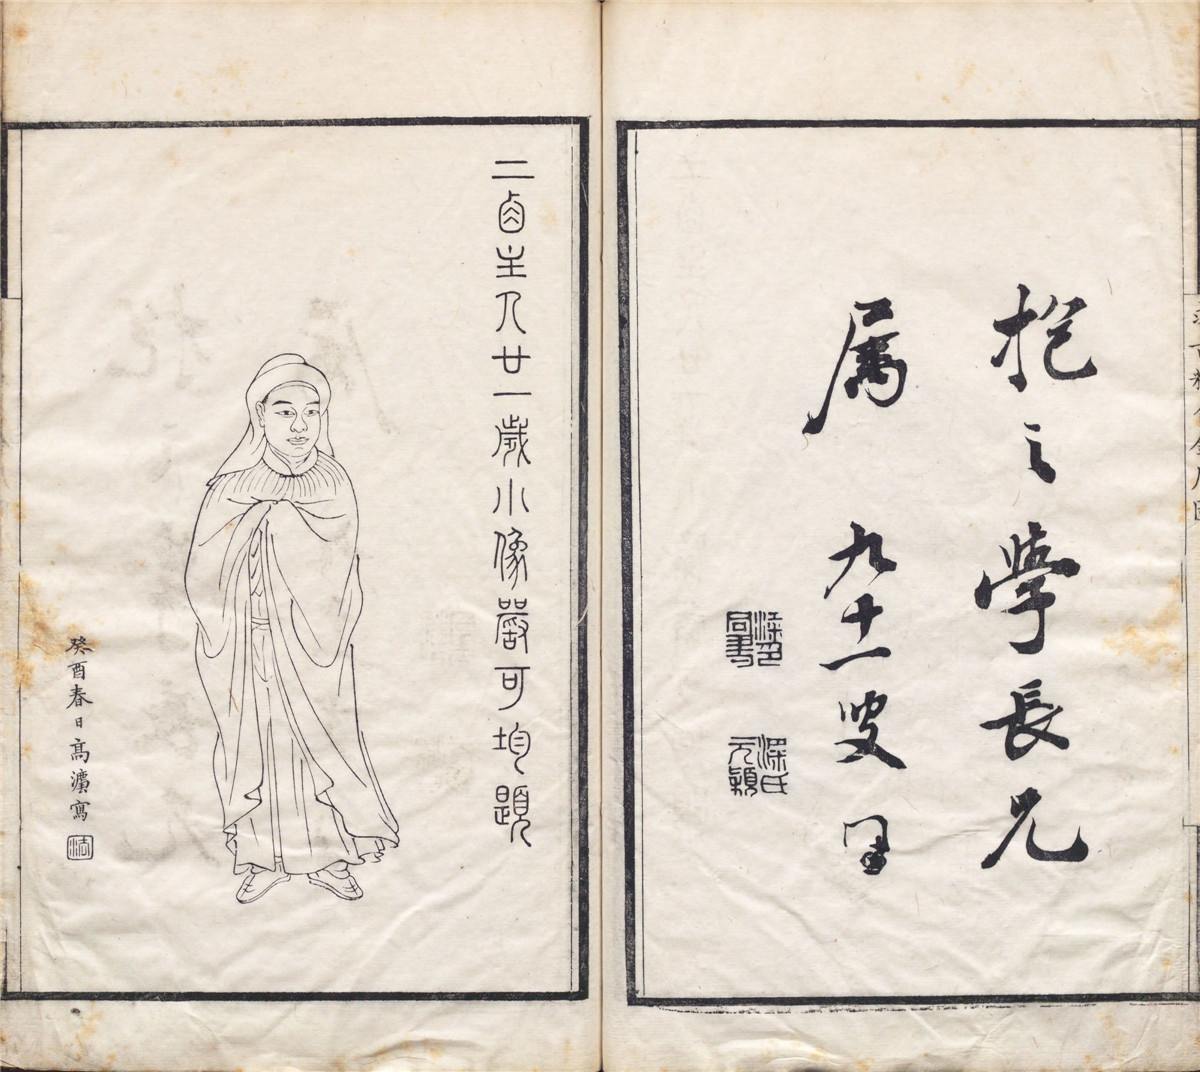 抱之學長兄
屬 九十一叟同書
梁印同書
梁氏元穎
二卣主人廿一歲小像嚴可均題
癸酉春日高瀇寫